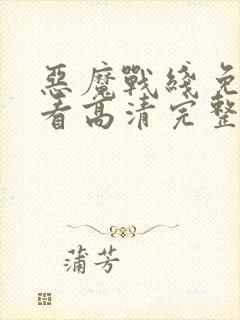 惡魔戰綫免
看高清完整
蒲芳